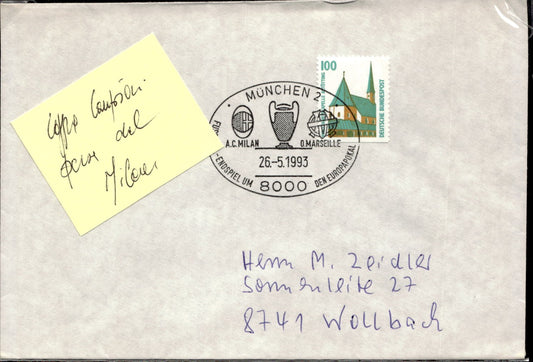 Coppa Campioni
per del
Milan
100
ALTÖTTING
DEUTSCHE BUNDESPOST
MÜNCHEN 2
A.C. MILAN
O. MARSEILLE
26.-5.1993
-ENDSPIEL UM
DEN EUROPAPOKAL
8000
Herrn M. Zeidler
Sonnenleite 27
8741 Wollbach